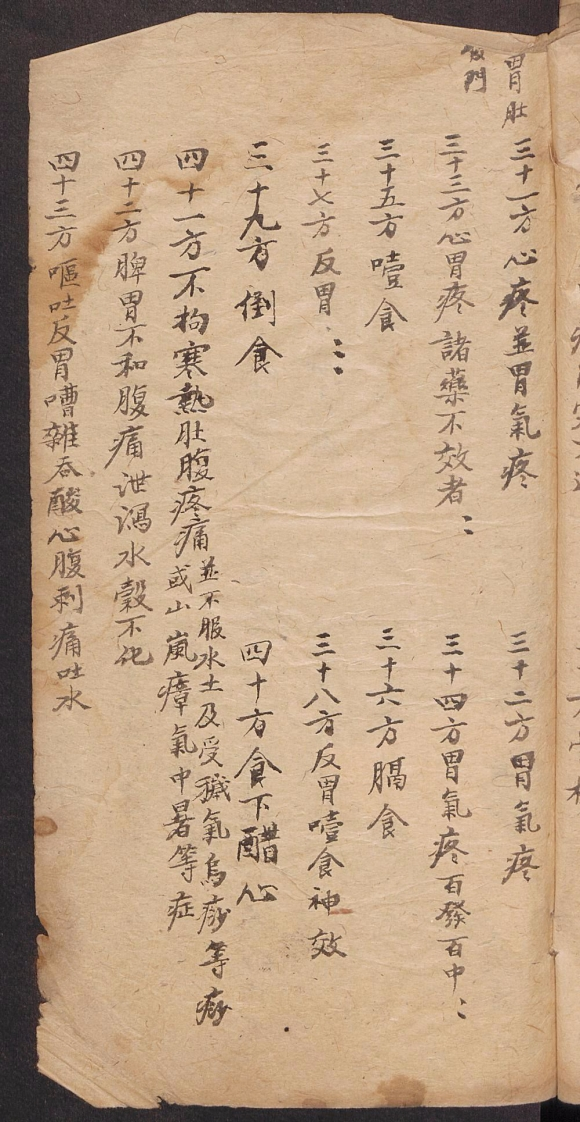 胃肚
飯門
三十一方心疼並胃氣疼
三十二方胃氣疼
三十三方心胃疼諸藥不效者：
三十四方胃氣疼百發百中：
三十五方噎食
三十六方膈食
三十七方反胃：：
三十八方反胃噎食神效
三十九方倒食
四十方食下醋心
四十一方不拘寒熱肚腹疼痛並不服水土及受穢氣烏痧等痧
或山嵐瘴氣中暑等症
四十二方脾胃不和腹痛泄瀉水穀不化
四十三方嘔吐反胃嘈雜吞酸心腹刺痛吐水